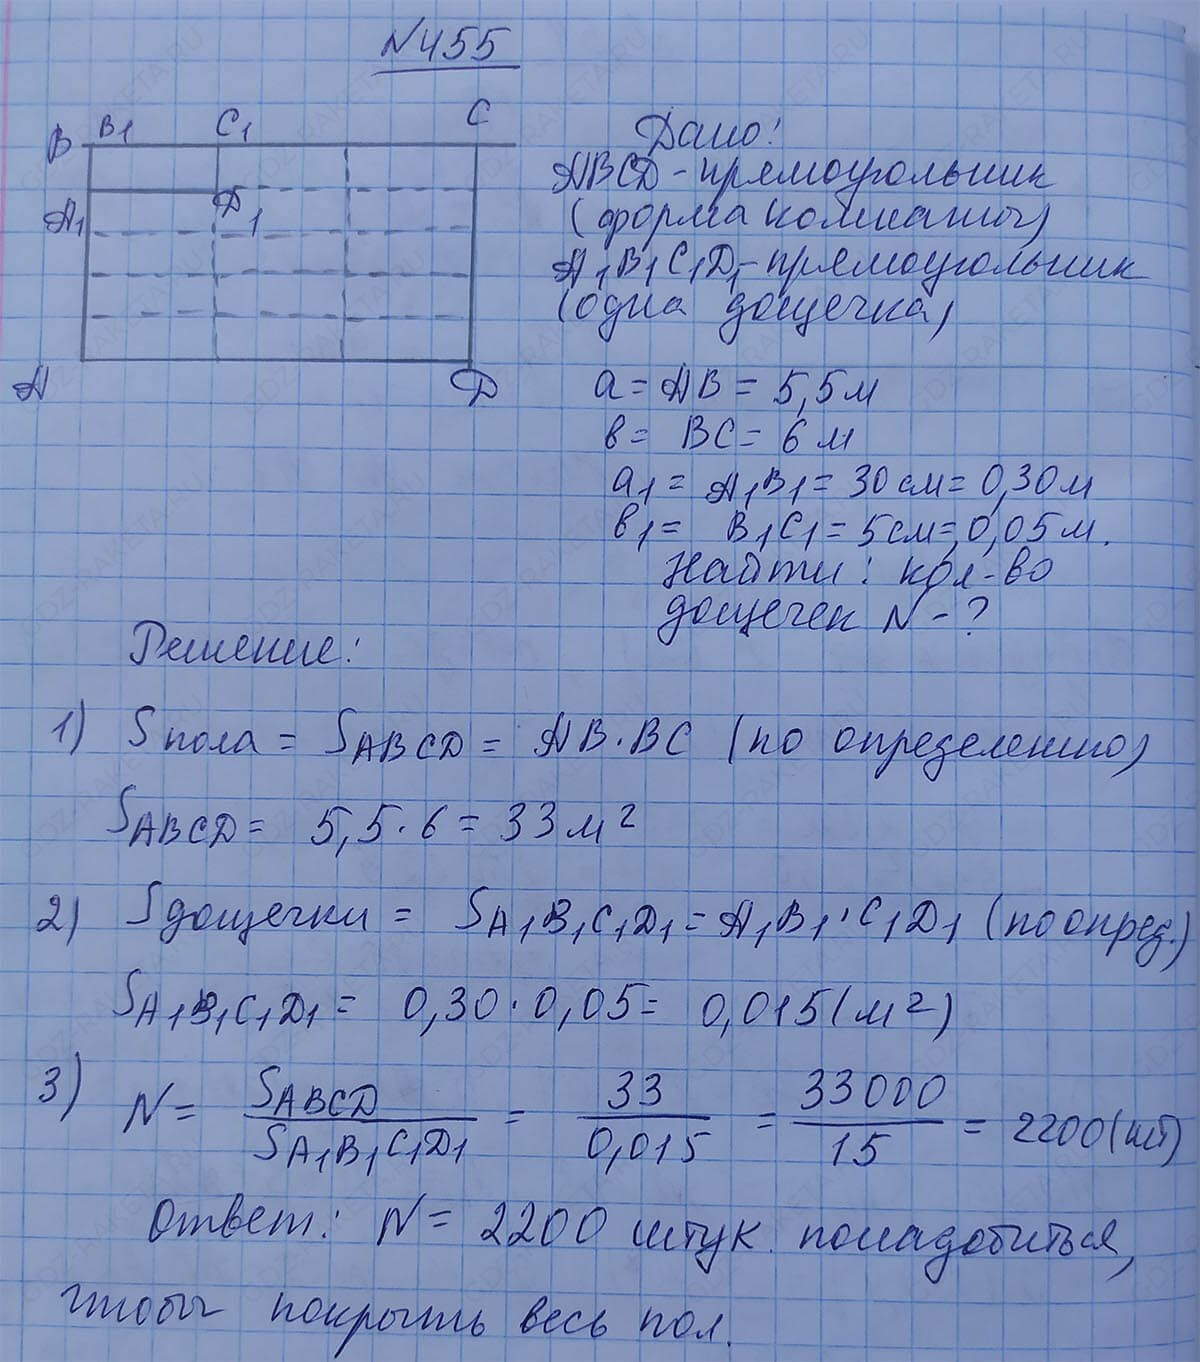 N455
B B1 C1 C
A1 D1
A D
Дано:
ABCD - прямоугольник
(форма комнаты)
A1B1C1D1 - прямоугольник
(одна дощечка)
a = AB = 5,5м
в = BC = 6м
a1 = A1B1 = 30см = 0,30м
в1 = B1C1 = 5см = 0,05м.
Найти: кол-во
дощечек N - ?
Решение:
1) Sпола = SABCD = AB · BC (по определению)
SABCD = 5,5 · 6 = 33м²
2) Sдощечки = SA1B1C1D1 = A1B1 · C1D1 (по опред.)
SA1B1C1D1 = 0,30 · 0,05 = 0,015(м²)
3) N = SABCD / SA1B1C1D1 = 33 / 0,015 = 33000 / 15 = 2200(шт)
Ответ: N = 2200 штук понадобиться,
чтобы покрыть весь пол.